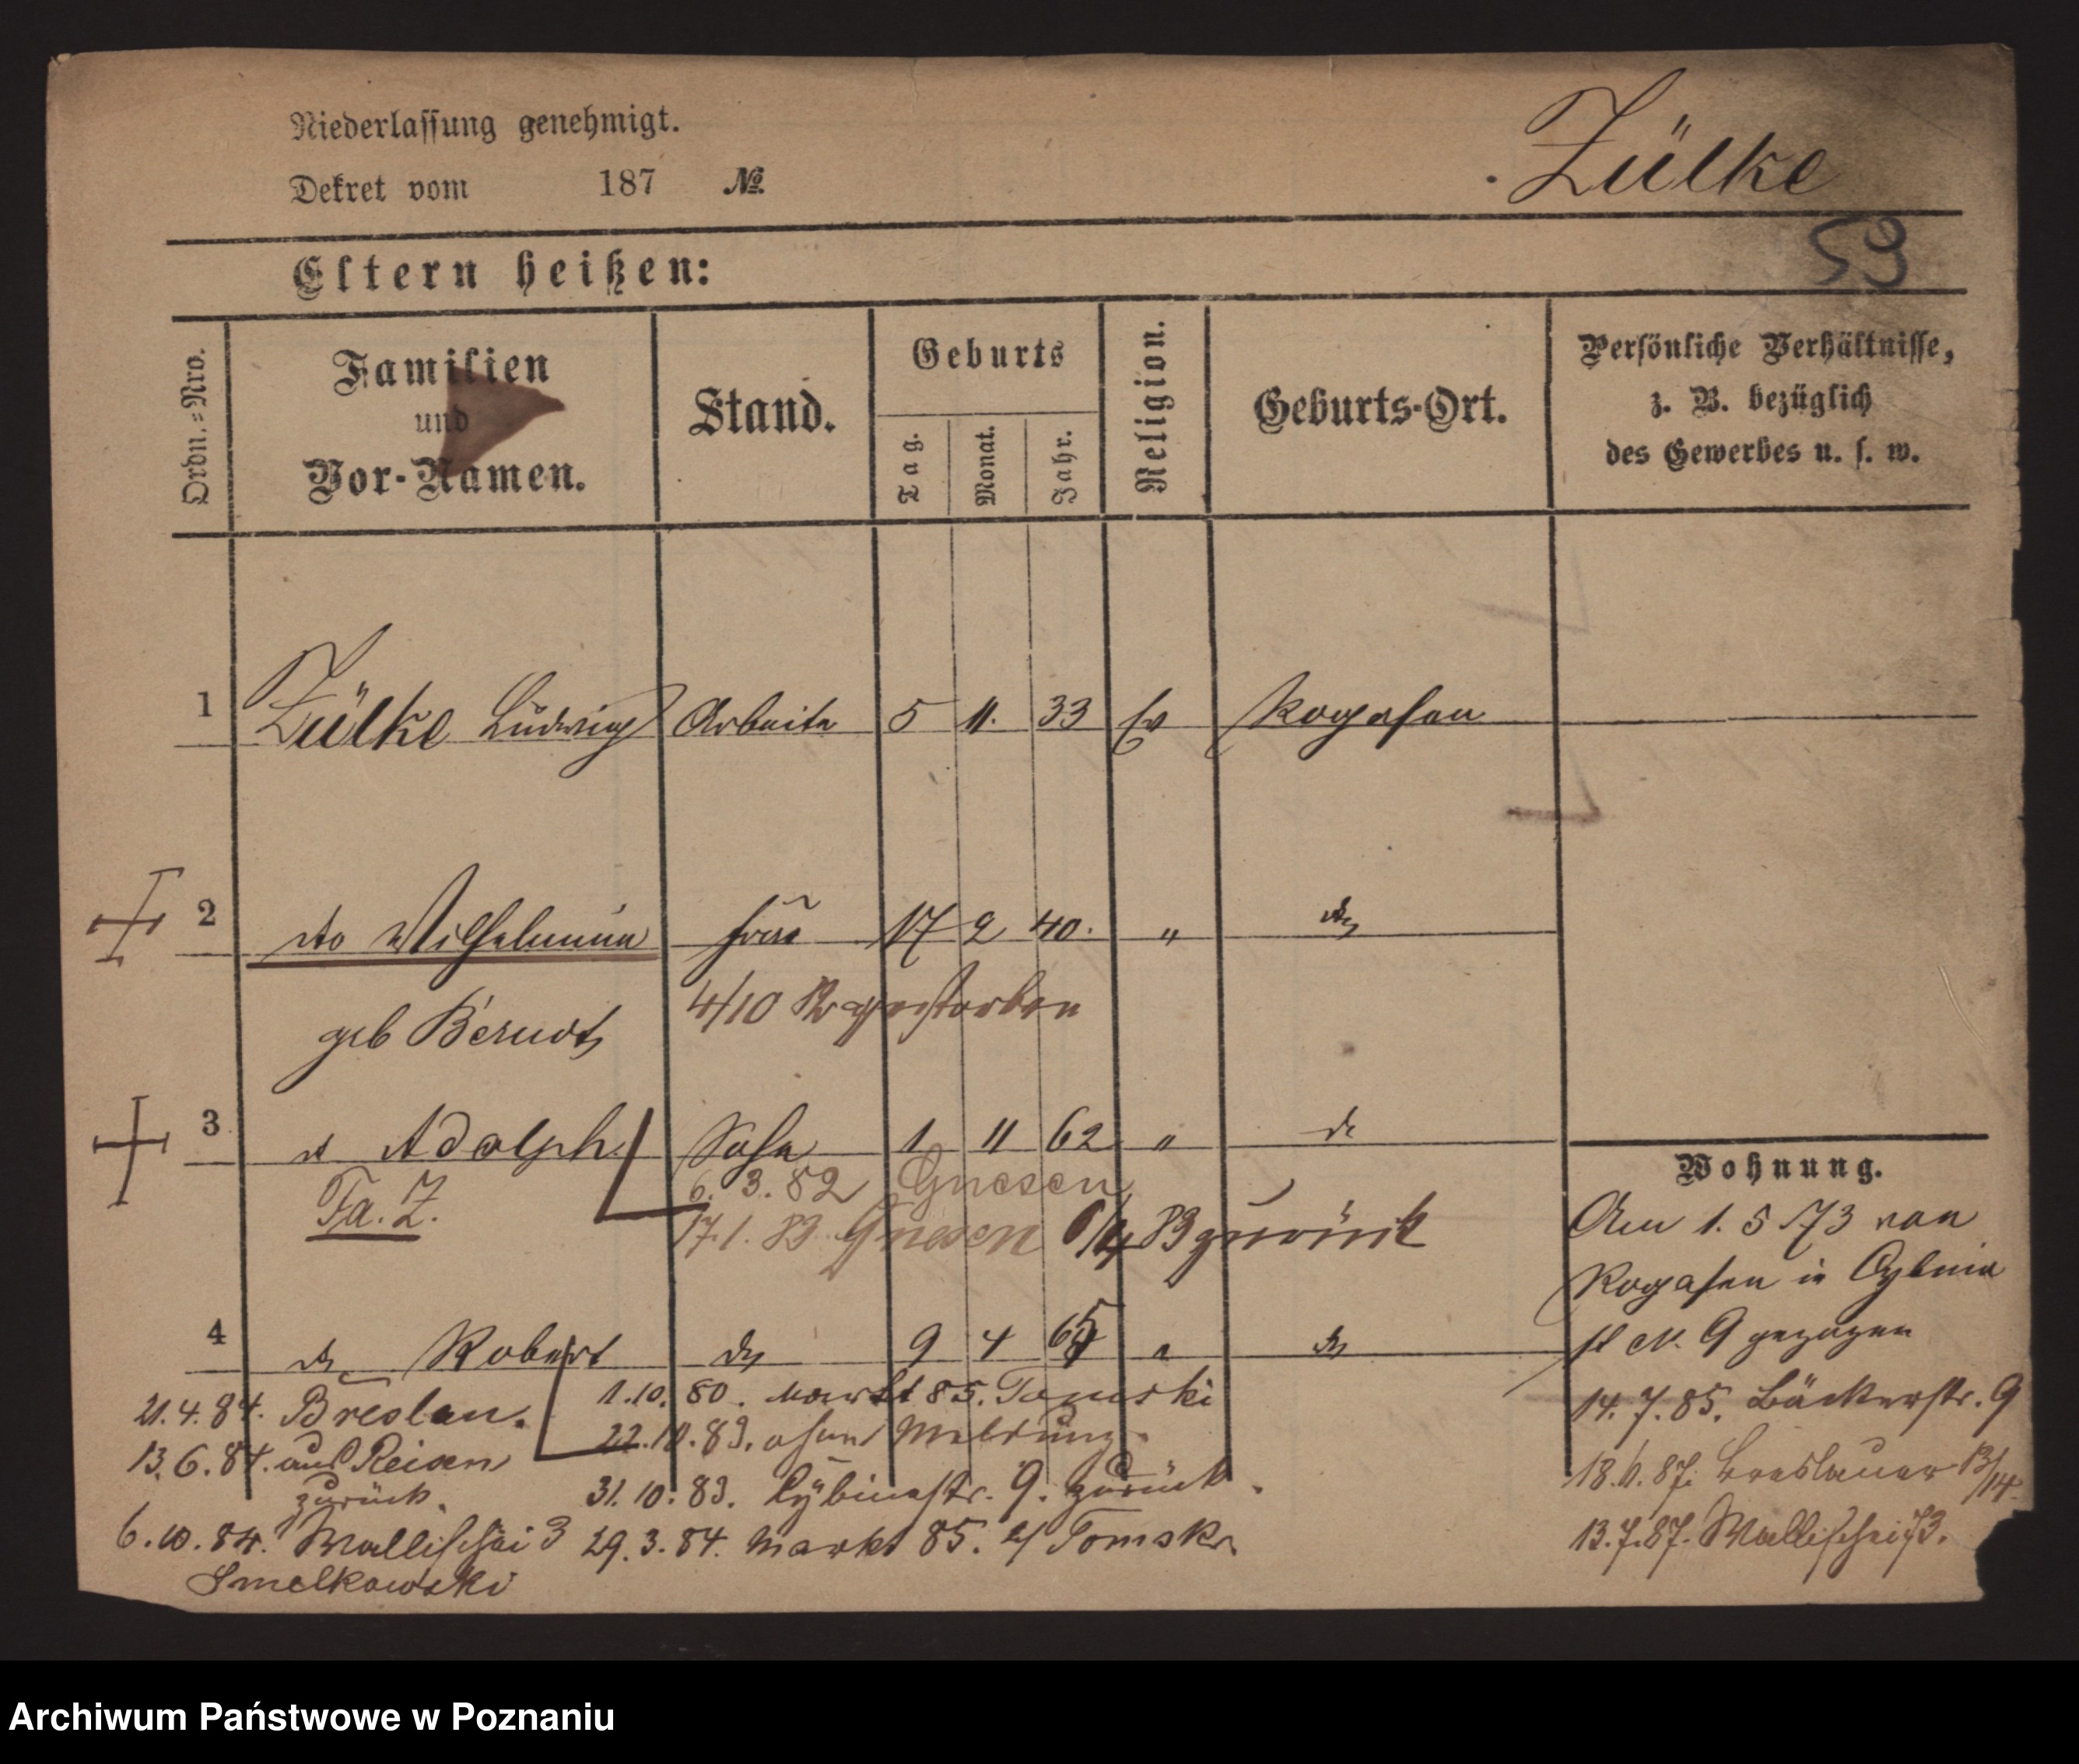 Niederlassung genehmigt.
Zülke
Dekret vom 187 №
59
Eltern heißen:
Ordn.=Nro.
Familien
und
Vor-Namen.
Stand.
Geburts
Tag.
Monat.
Jahr.
Religion.
Geburts-Ort.
Persönliche Verhältnisse,
z. B. bezüglich
des Gewerbes u. s. w.
1 Zülke Ludwig Arbeiter 5 11. 33 Ev Rogasen
2 dto Wilhelmine Frau 17 2 40. " dto
geb Berndt 4/10 gestorben
3 dt Adolph Sohn 1 11 62 " dt
Ta. Z.
6. 3. 82 Gnesen
17.1.83 Gnesen 83 zurück
4 dt Robert dt 9 4 65 " dt
Wohnung.
Am 1. 5 73 von
Rogasen in Cybina
st N. 9 gezogen
14. 7. 85. Bäckerstr. 9
18. 87. Breslauer 13/14.
13. 7. 87. Wallischei 73.
21. 4. 84. Breslau.
13. 6. 84. aus Reisen
zurück.
6. 10. 84. Wallischei 3
Smelkowski
1. 10. 80. Markt 85. Tomski
22. 10. 83. ohne Meldung.
31. 10. 83. Cybinastr. 9. zurück.
29. 3. 84. Markt 85. b/ Tomski
Archiwum Państwowe w Poznaniu